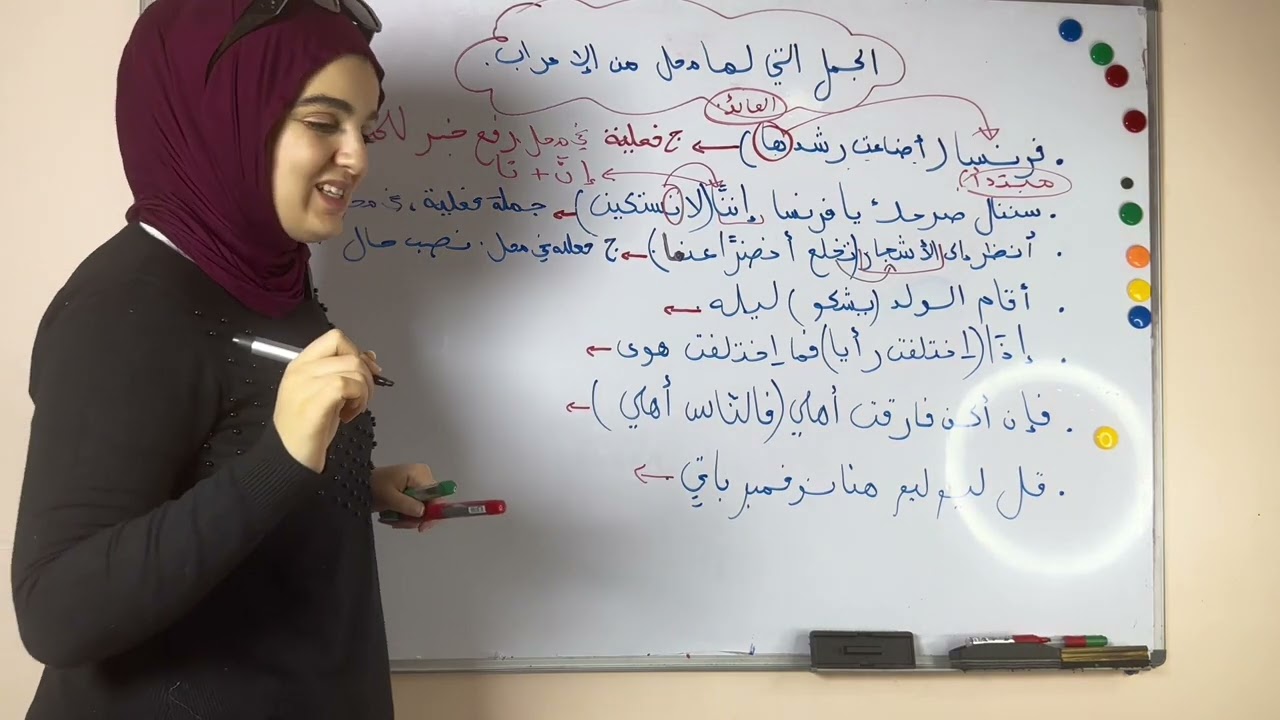 الجمل التي لها محل من الإعراب.
العائد
. فرنسا (أضاعت رشدها) ← ج فعلية في محل رفع خبر
مبتدأ.
إنّ + نا
. سننال صرحك يا فرنسا إننّا (لا نستكين) ← جملة فعلية، في
. أنظر الأشجار (تخلع أخضرًا عنها) ← ج فعلية في محل. نصب حال
. أقام الولد (يشكو) ليله ←
. إذَا (اختلفت رأيا) فما اختلفت هوى ←
. فإن أكن فارقت أهلي (فالنّاس أهلي) ←
. قل هنا نوفمبر باقي ←